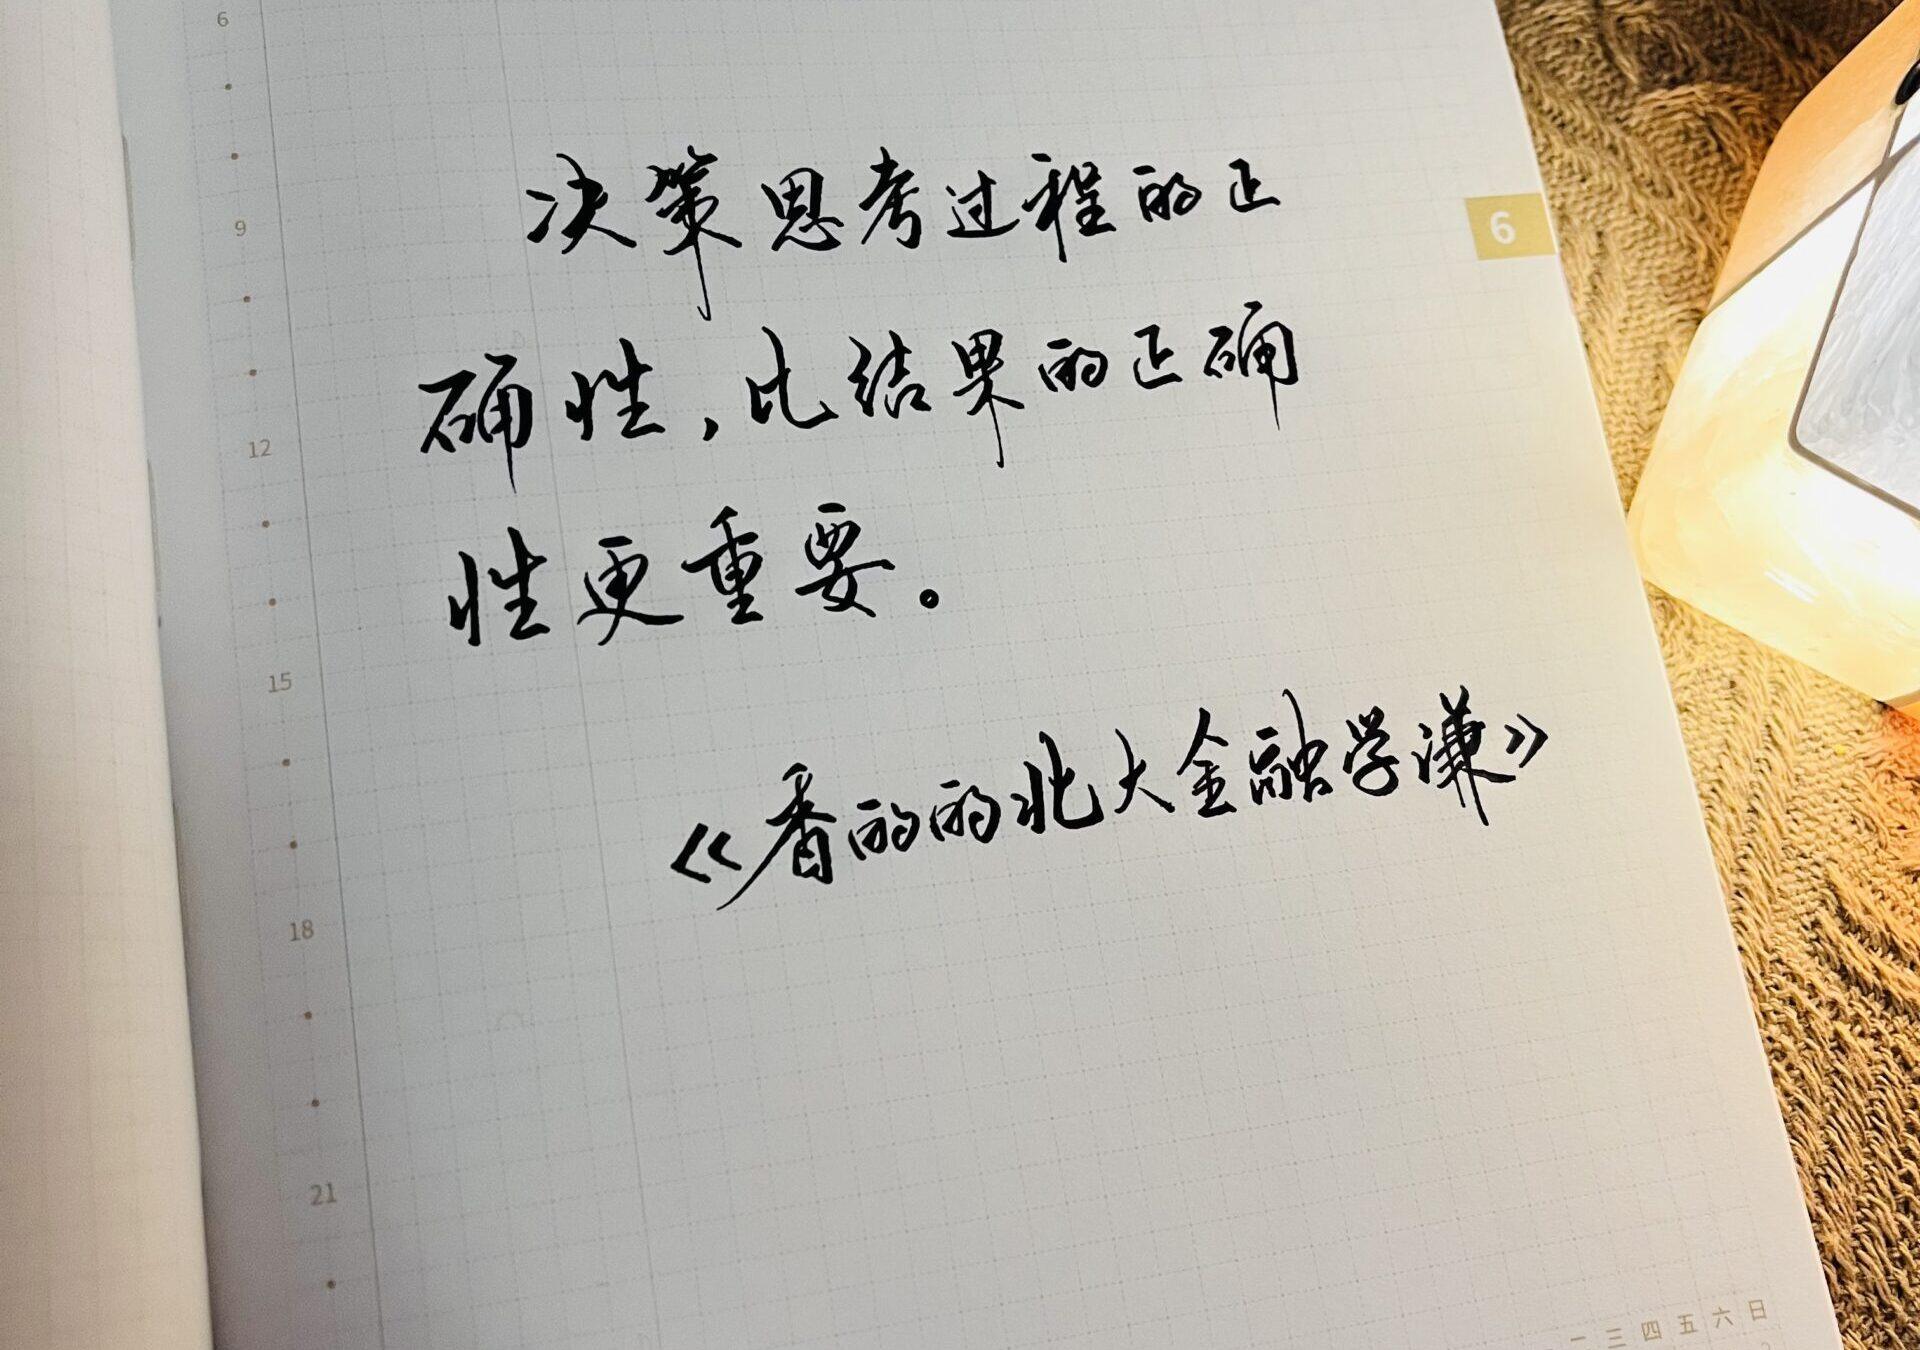 6
9
12
15
18
21
决策思考过程的正
确性，比结果的正确
性更重要。
《香的的北大金融学课》
6
二 三 四 五 六 日